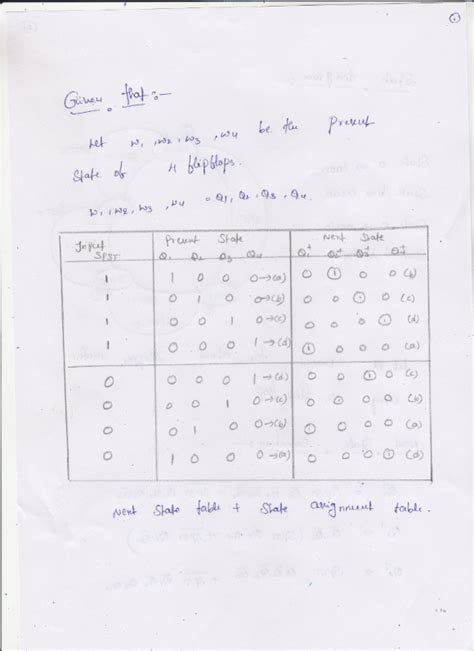 ①
Given that:-
Let w1, w2, w3, w4 be the Present
State of 4 flipflops.
w1, w2, w3, w4 = Q1, Q2, Q3, Q4.
Input Present State Next State
SPST Q1 Q2 Q3 Q4 Q1+ Q2+ Q3+ Q4+
1 1 0 0 0→(a) 0 ① 0 0 (b)
1 0 1 0 0→(b) 0 0 ① 0 (c)
1 0 0 1 0→(c) 0 0 0 ① (d)
1 0 0 0 1→(d) ① 0 0 0 (a)
0 0 0 0 1→(d) 0 0 ① 0 (c)
0 0 0 1 0→(c) 0 ① 0 0 (b)
0 0 1 0 0→(b) ① 0 0 0 (a)
0 1 0 0 0→(a) 0 0 0 ① (d)
Next State table + State assignment table.